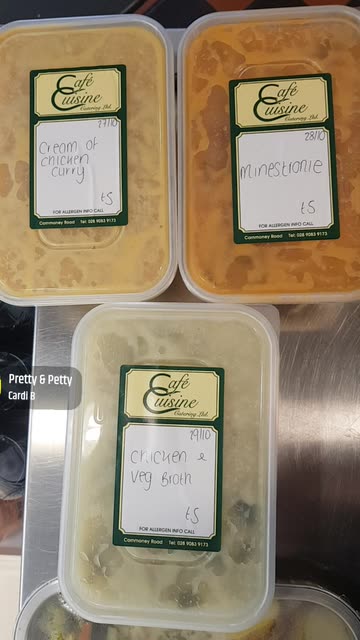 Café
Cuisine
Catering Ltd.
27/10
Cream of
chicken
curry
£5
FOR ALLERGEN INFO CALL
Cammoney Road Tel: 028 9083 9173
Café
Cuisine
Catering Ltd.
28/10
minestrone
£5
FOR ALLERGEN INFO CALL
Cammoney Road Tel: 028 9083 9173
Pretty & Petty
Cardi B
Café
Cuisine
Catering Ltd.
29/10
Chicken &
Veg Broth
£5
FOR ALLERGEN INFO CALL
Cammoney Road Tel: 028 9083 9173